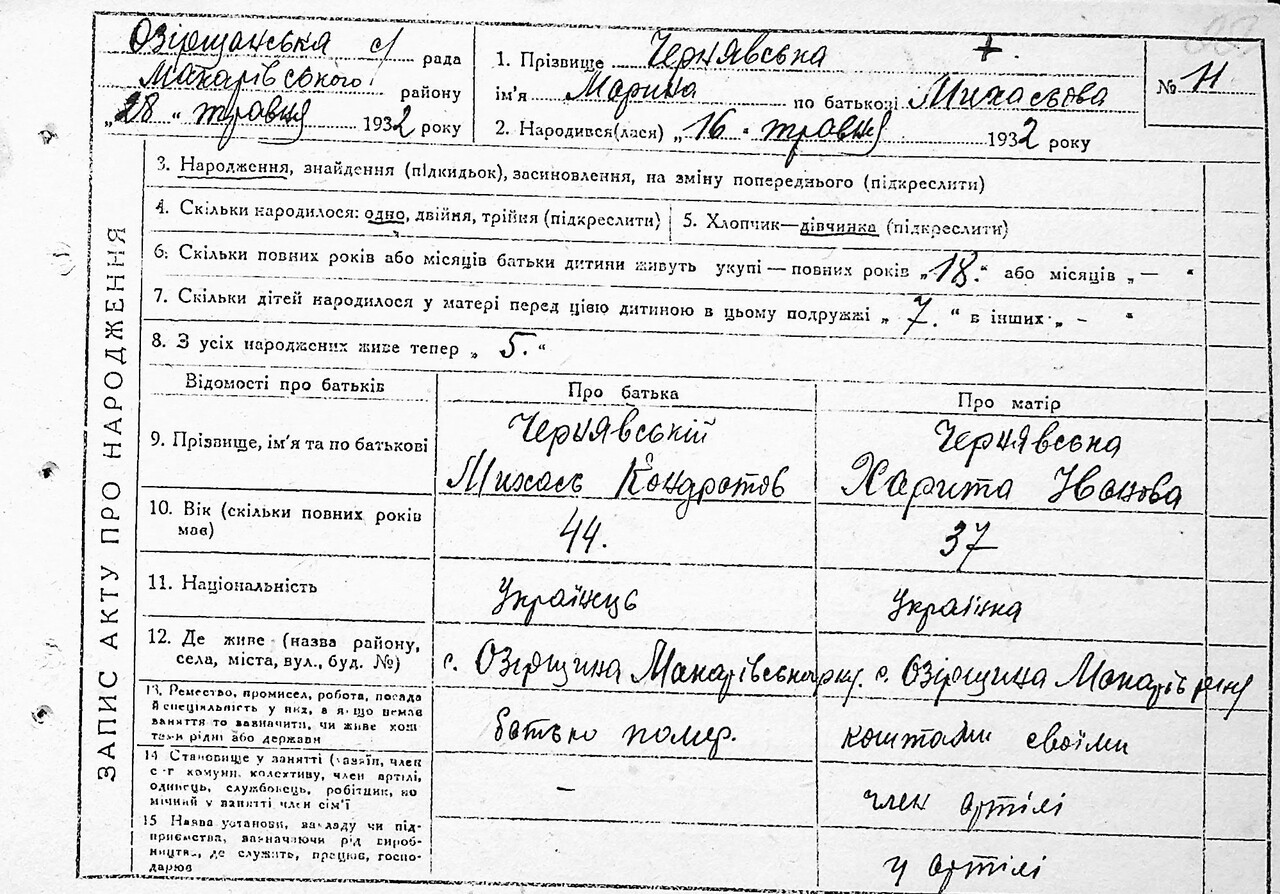 Озірщанська с/ рада
Макарівського району
„28“ травня 1932 року
1. Прізвище Чернявська +
ім'я Марина по батькові Михасьова
2. Народився(лася) „16“ травня 1932 року
№ 11
ЗАПИС АКТУ ПРО НАРОДЖЕННЯ
3. Народження, знайдення (підкидьок), засиновлення, на зміну попереднього (підкреслити)
4. Скільки народилося: одно, двійня, трійня (підкреслити)
5. Хлопчик—дівчинка (підкреслити)
6. Скільки повних років або місяців батьки дитини живуть укупі — повних років „18.“ або місяців „—“
7. Скільки дітей народилося у матері перед цією дитиною в цьому подружжі „7.“ в інших „-“
8. З усіх народжених живе тепер „5.“
Відомості про батьків
Про батька
Про матір
9. Прізвище, ім'я та по батькові
Чернявській
Михась Кондратов
Чернявська
Харита Іванова
10. Вік (скільки повних років
має)
44.
37
11. Національність
Українець
Українка
12. Де живе (назва району,
села, міста, вул., буд. №)
с. Озірщина Макарівського р-ну.
с. Озірщина Макарів району
13. Ремество, промисел, робота, посада
й спеціальність у них, а якщо немає
заняття то зазначити, чи живе кош
тами рідні або держави
батько помер.
коштами своїми
14 Становище у занятті (хазяїн, член
с-г комуни, колективу, член артілі,
одинець, службовець, робітник, по
мічний у занятті член сім'ї
–
член артілі
15 Назва установи, закладу чи під-
приємства, зазначаючи рід вироб-
ництва, де служить, працює, госпо-
дарює
у артілі